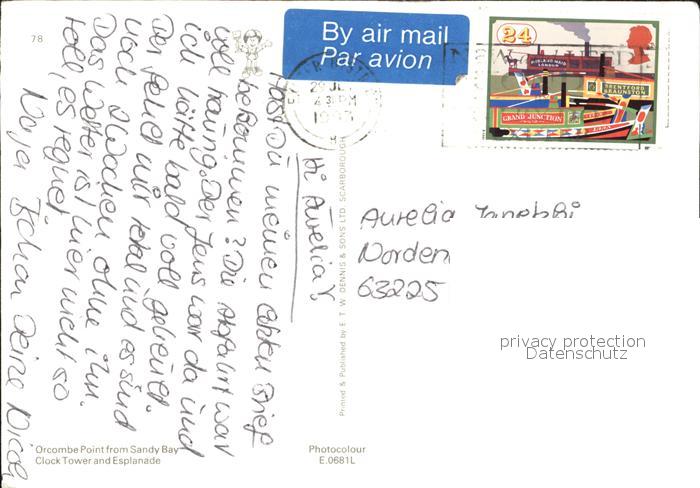 78
By air mail
Par avion
24
MIDLAND MAID
LONDON
BRENTFORD
BRAUNSTON
GRAND JUNCTION
Hi Aurelia!
Hast Du meinen ersten Brief
bekommen? Die Abfahrt war
voll traurig. Der Jens war da und
ich hätte bald voll geheult.
Der fehlt mir total und es sind
noch 2 Wochen ohne ihn.
Das Wetter ist hier nicht so
toll, es regnet
Naja! Tschau Deine Nicole
Aurelia
Norden
63225
privacy protection
Datenschutz
Printed & Published by E. T. W. DENNIS & SONS LTD. SCARBOROUGH
Orcombe Point from Sandy Bay
Clock Tower and Esplanade
Photocolour
E.0681L